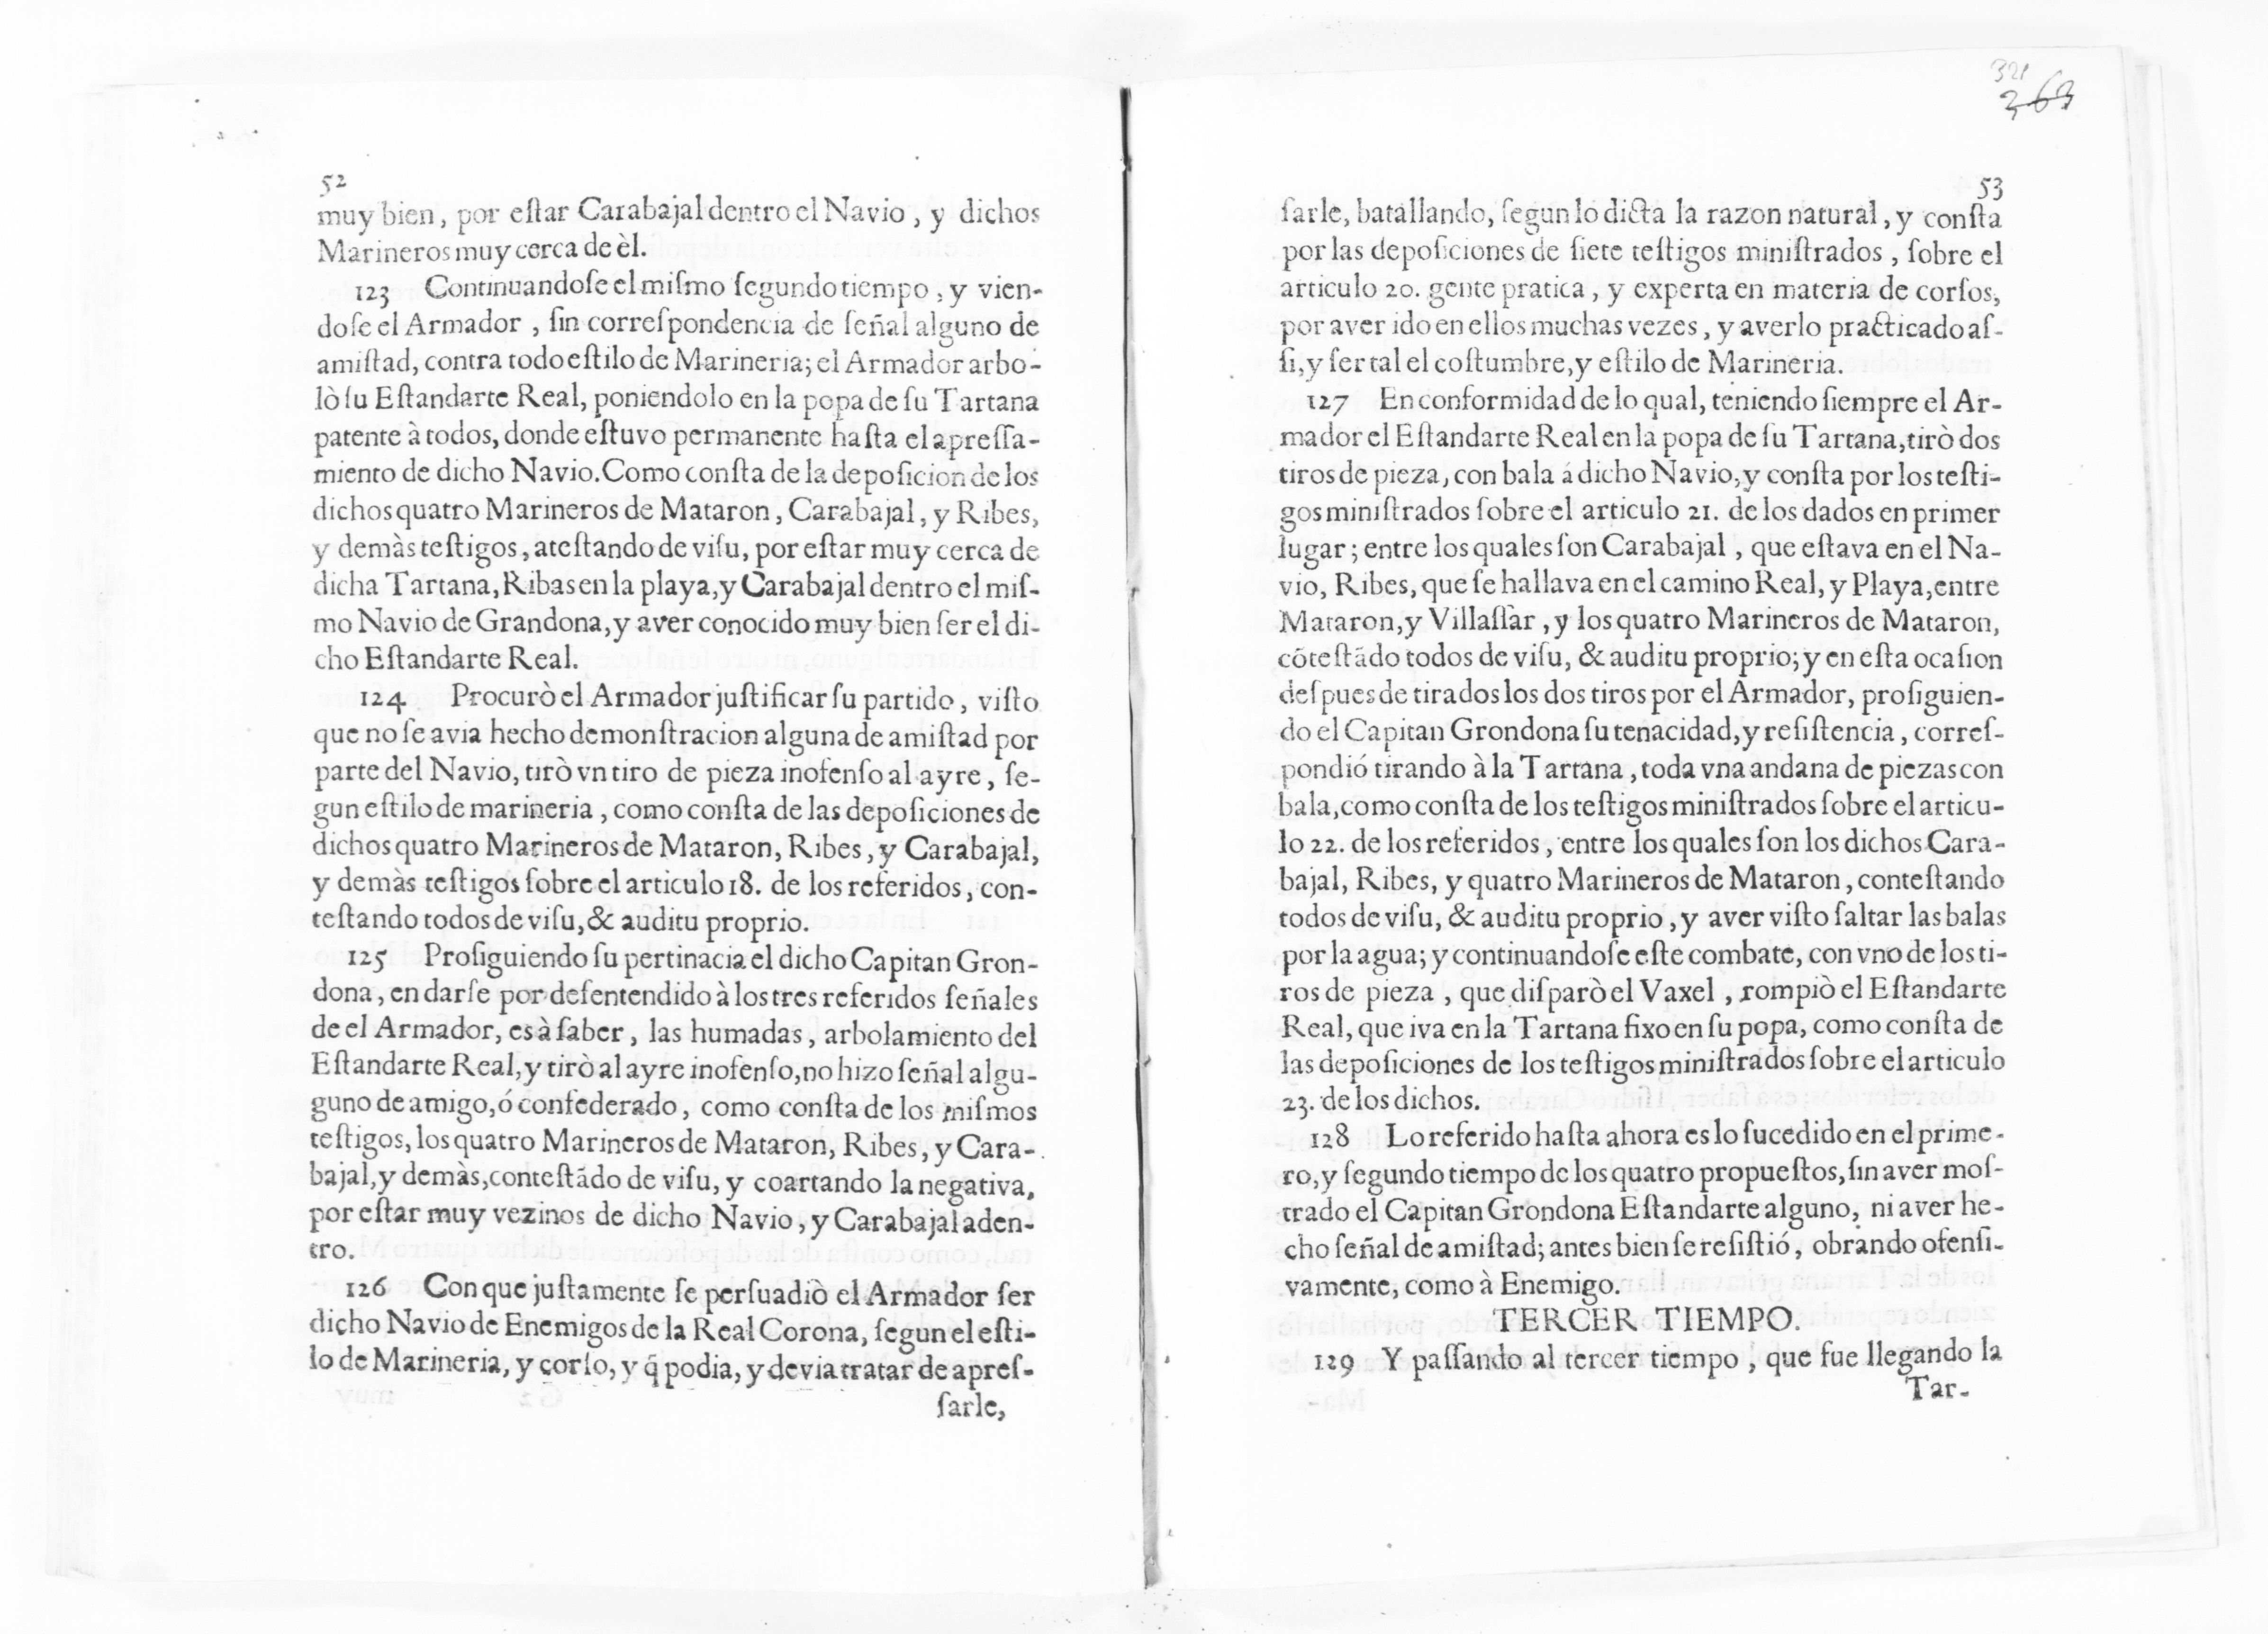 52
muy bien, por eſtar Carabajal dentro el Navio, y dichos
Marineros muy cerca de èl.
123 Continuandoſe el miſmo ſegundo tiempo, y vien-
doſe el Armador, ſin correſpondencia de ſeñal alguno de
amiſtad, contra todo eſtilo de Marineria; el Armador arbo-
lò ſu Eſtandarte Real, poniendolo en la popa de ſu Tartana
patente à todos, donde eſtuvo permanente haſta el apreſſa-
miento de dicho Navio. Como conſta de la depoſicion de los
dichos quatro Marineros de Mataron, Carabajal, y Ribes,
y demàs teſtigos, ateſtando de viſu, por eſtar muy cerca de
dicha Tartana, Ribas en la playa, y Carabajal dentro el miſ-
mo Navio de Grandona, y aver conocido muy bien ſer el di-
cho Eſtandarte Real.
124 Procurò el Armador juſtificar ſu partido, viſto
que no ſe avia hecho demonſtracion alguna de amiſtad por
parte del Navio, tirò vn tiro de pieza inofenſo al ayre, ſe-
gun eſtilo de marineria, como conſta de las depoſiciones de
dichos quatro Marineros de Mataron, Ribes, y Carabajal,
y demàs teſtigos ſobre el articulo 18. de los referidos, con-
teſtando todos de viſu, & auditu proprio.
125 Proſiguiendo ſu pertinacia el dicho Capitan Gron-
dona, en darſe por deſentendido à los tres referidos ſeñales
de el Armador, es à ſaber, las humadas, arbolamiento del
Eſtandarte Real, y tirò al ayre inofenſo, no hizo ſeñal algu-
guno de amigo, ó confederado, como conſta de los miſmos
teſtigos, los quatro Marineros de Mataron, Ribes, y Cara-
bajal, y demàs, conteſtãdo de viſu, y coartando la negativa,
por eſtar muy vezinos de dicho Navio, y Carabajal aden-
tro.
126 Con que juſtamente ſe perſuadiò el Armador ſer
dicho Navio de Enemigos de la Real Corona, ſegun el eſti-
lo de Marineria, y corſo, y q̃ podia, y devia tratar de apreſ-
ſarle,
321
363
53
ſarle, batallando, ſegun lo dicta la razon natural, y conſta
por las depoſiciones de ſiete teſtigos miniſtrados, ſobre el
articulo 20. gente pratica, y experta en materia de corſos,
por aver ido en ellos muchas vezes, y averlo practicado aſ-
ſi, y ſer tal el coſtumbre, y eſtilo de Marineria.
127 En conformidad de lo qual, teniendo ſiempre el Ar-
mador el Eſtandarte Real en la popa de ſu Tartana, tirò dos
tiros de pieza, con bala á dicho Navio, y conſta por los teſti-
gos miniſtrados ſobre el articulo 21. de los dados en primer
lugar; entre los quales ſon Carabajal, que eſtava en el Na-
vio, Ribes, que ſe hallava en el camino Real, y Playa, entre
Mataron, y Villaſſar, y los quatro Marineros de Mataron,
cõteſtãdo todos de viſu, & auditu proprio; y en eſta ocaſion
deſpues de tirados los dos tiros por el Armador, proſiguien-
do el Capitan Grondona ſu tenacidad, y reſiſtencia, correſ-
pondió tirando à la Tartana, toda vna andana de piezas con
bala, como conſta de los teſtigos miniſtrados ſobre el articu-
lo 22. de los referidos, entre los quales ſon los dichos Cara-
bajal, Ribes, y quatro Marineros de Mataron, conteſtando
todos de viſu, & auditu proprio, y aver viſto ſaltar las balas
por la agua; y continuandoſe eſte combate, con vno de los ti-
ros de pieza, que diſparò el Vaxel, rompiò el Eſtandarte
Real, que iva en la Tartana fixo en ſu popa, como conſta de
las depoſiciones de los teſtigos miniſtrados ſobre el articulo
23. de los dichos.
128 Lo referido haſta ahora es lo ſucedido en el prime-
ro, y ſegundo tiempo de los quatro propueſtos, ſin aver moſ-
trado el Capitan Grondona Eſtandarte alguno, ni aver he-
cho ſeñal de amiſtad; antes bien ſe reſiſtió, obrando ofenſi-
vamente, como à Enemigo.
TERCER TIEMPO.
129 Y paſſando al tercer tiempo, que fue llegando la
Tar-